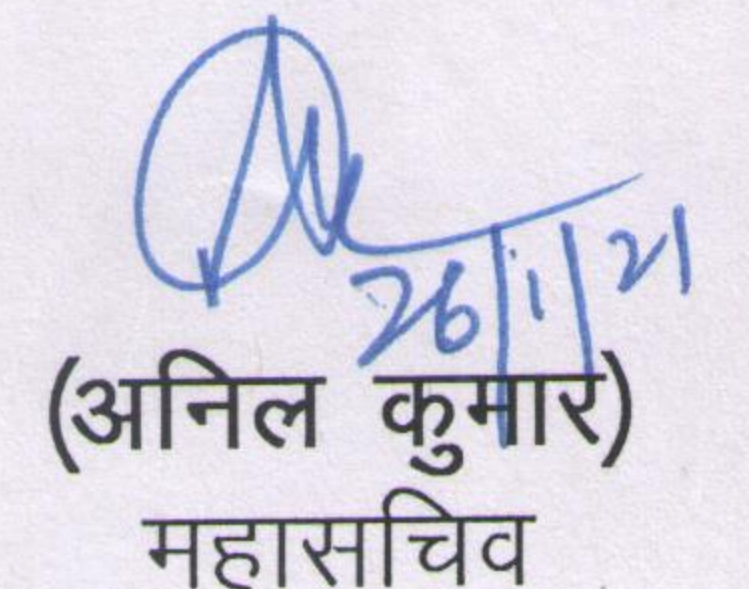 26/1/21
(अनिल कुमार)
महासचिव